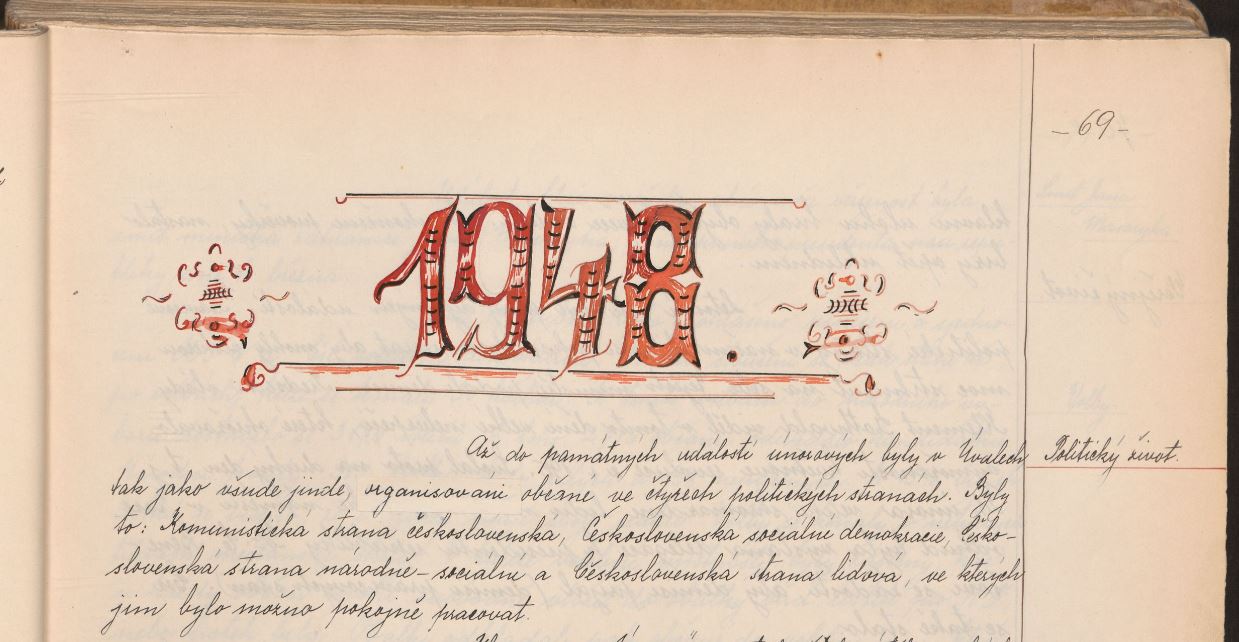 - 69 -
1948.
Až do památných událostí únorových byly v Úvalech
Politický život.
tak jako všude jinde, organisováni občané ve čtyřech politických stranách. Byly
to: Komunistická strana československá, Československá sociální demokracie, Česko-
slovenská strana národně-sociální a Československá strana lidová, ve kterých
jim bylo možno pokojně pracovat.